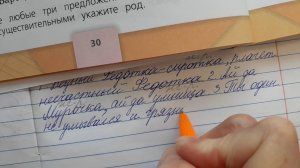 е любые три предложе
существительными укажите род.
30
Бедный Федотка-сиротка, плачет
несчастный Федотка 2. Ай да
Мурочка, ай да умница 3. Ты один
не умывался и грязн